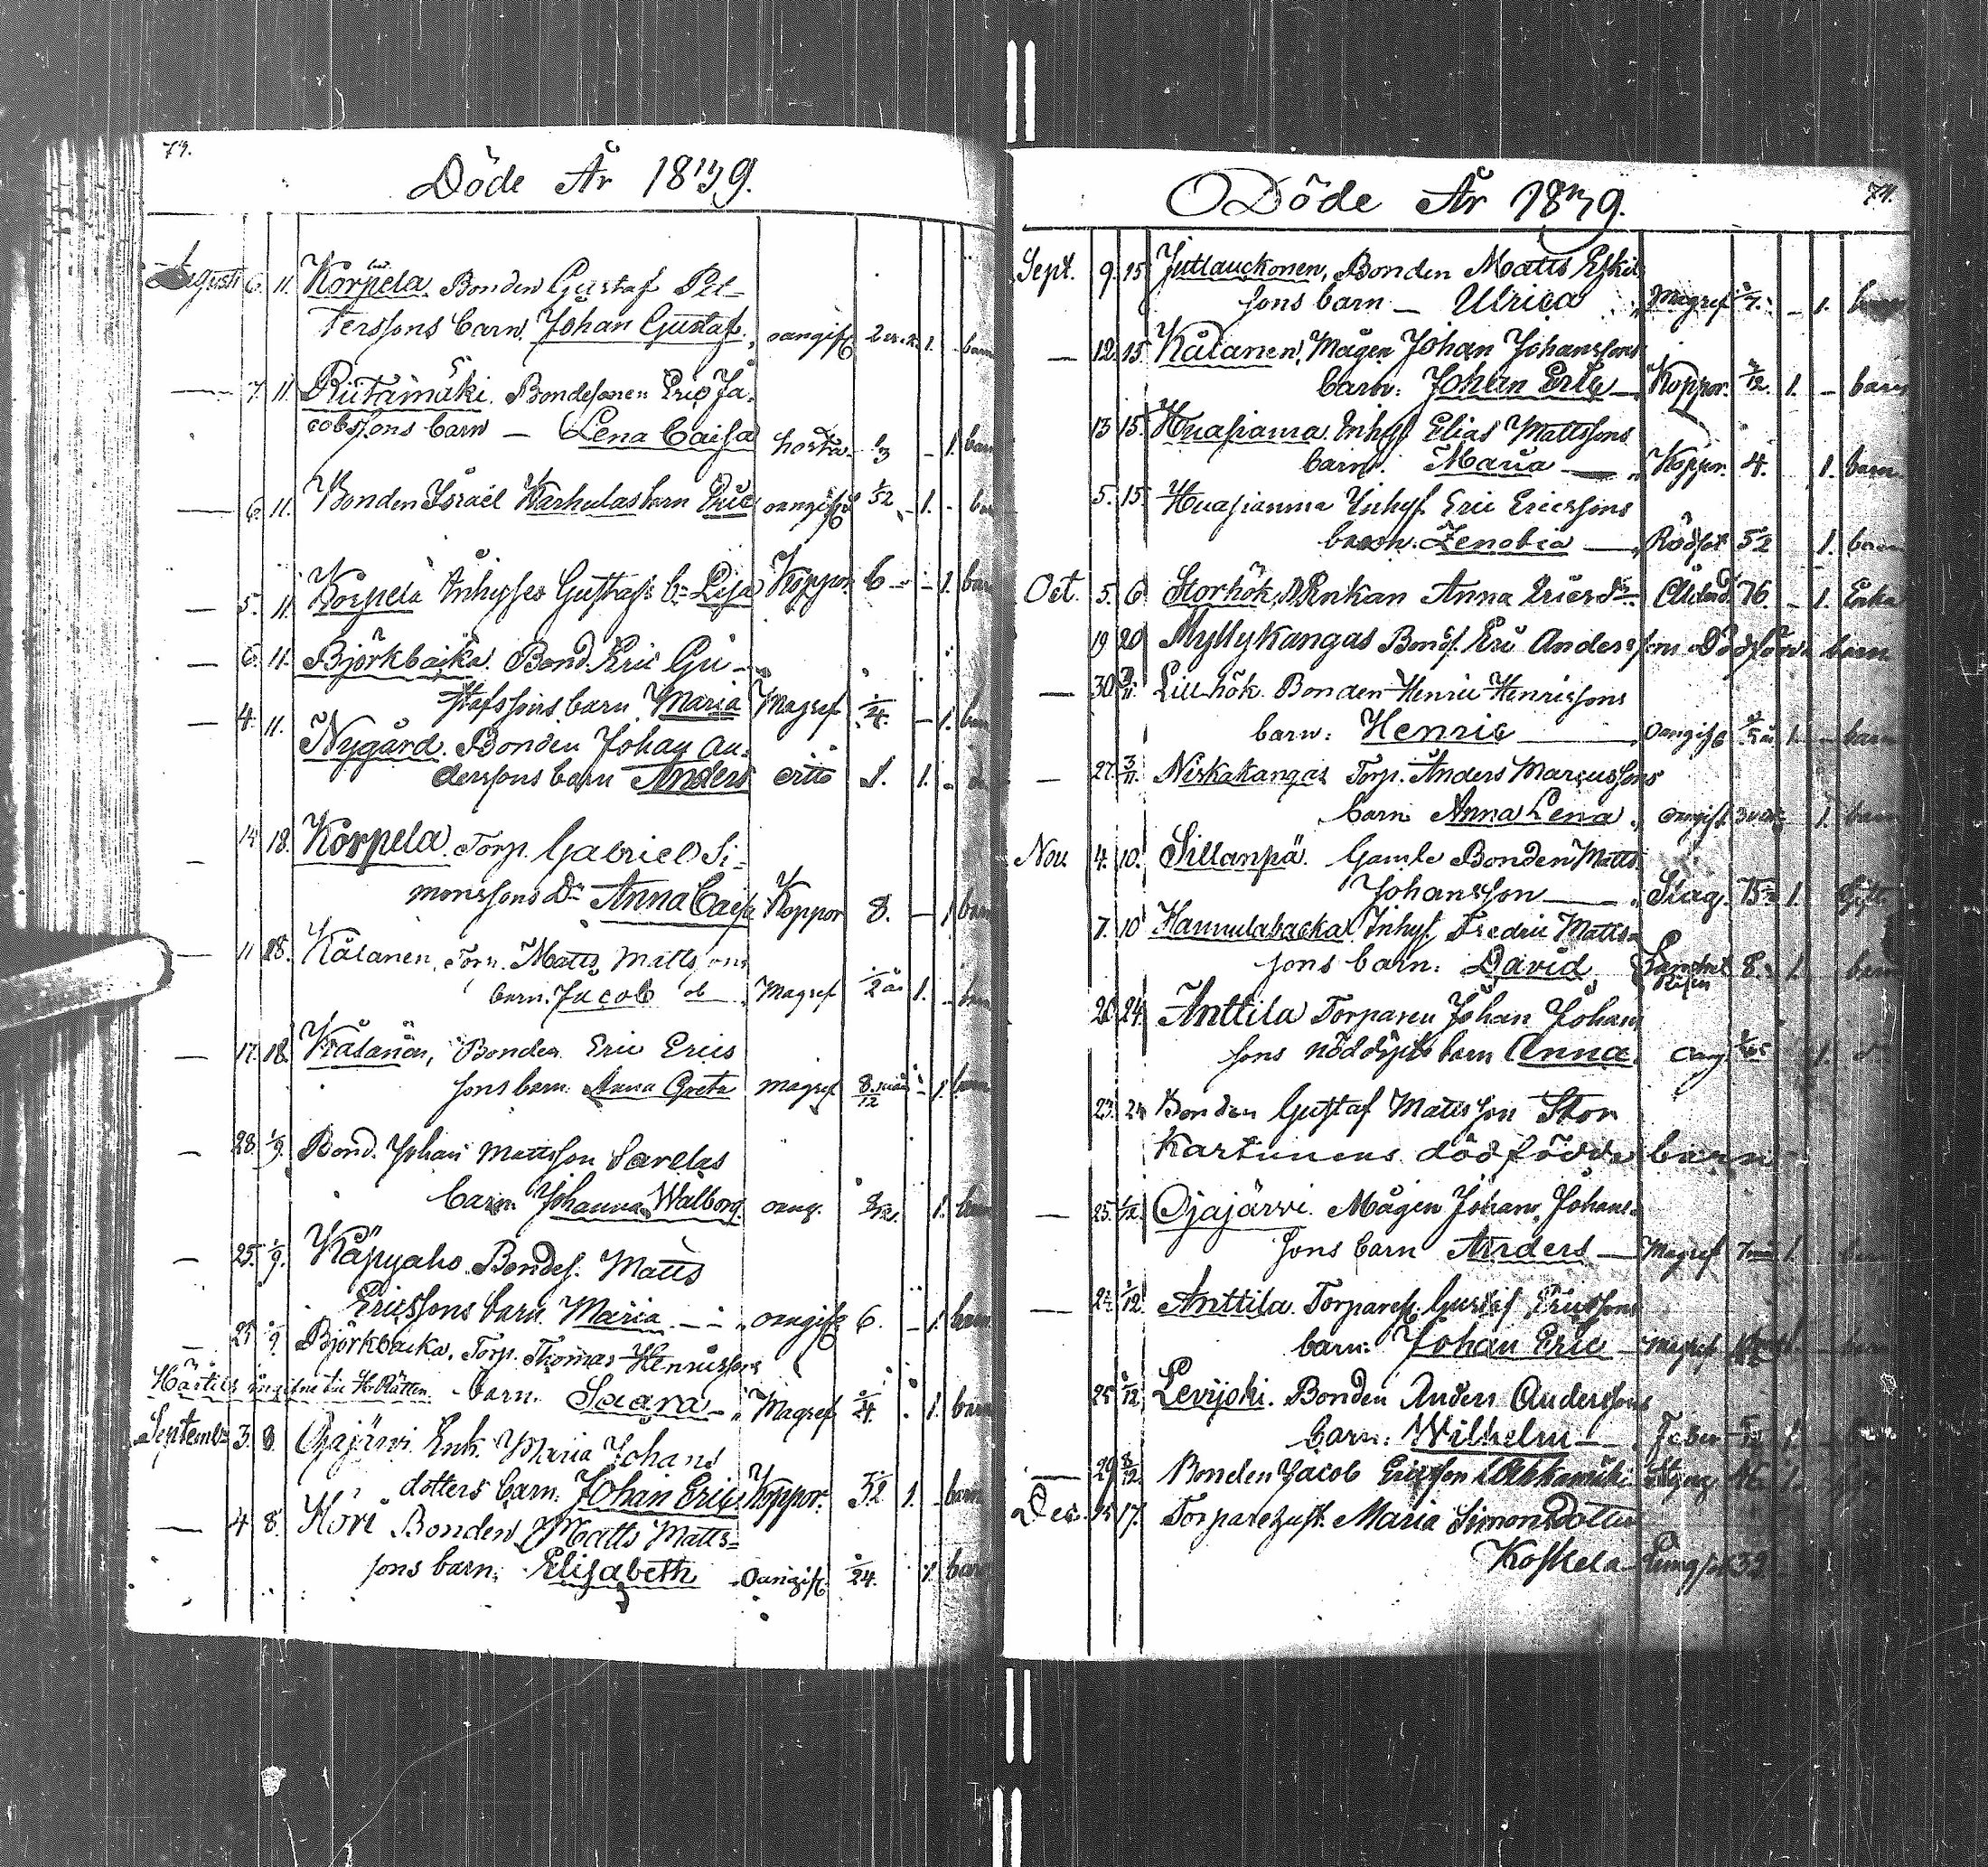 73.
Döde År 1839.
Augusti 6. 11. Korpela. Bonden Gustaf Pet-
terssons barn. Johan Gustaf. oangif. 1. barn
7. 11. Riitamäki. Bondesonen Eric Ja-
cobssons barn — Lena Caisa hosta 1/3 — 1. barn
6. 11. Bonden Israel Karhulas barn Eric oangif. 1/52 1. barn
5. 11. Korpela Inhyses Gustafs b. Lisa Koppor 6 — 1. barn
6. 11. Björkbacka. Bond. Eric Gu-
stafssons barn Maria Magref 1/24. 1. barn
4. 11. Nygård. Bonden Johan An-
derssons barn Anders ditto 1. 1.
14 18. Korpela. Torp. Gabriel Si-
monssons Dr Anna Caisa Koppor 8. — 1 barn
11 18. Kålanen. Torp. Matts Mattssons
barn. Jacob Magref 1/2 år 1. barn
17. 18. Kålanen, Bonden Eric Erics
sons barn. Anna Greta magref 8/12 1. barn
28. 1/9. Bond. Johan Mattsson Sarelas
barn. Johanna Walborg. oang. 1. barn
25. 1/9. Käpyaho. Bondes. Matts
Ericssons barn Maria. — oangif. 6. — 1. barn
25 1/9 Björkbacka. Torp. Thomas Henricssons
Härtils angifne til H. Rätten. barn. Saara Magref 2/24. 1. barn
Septemb. 3. 8. Ojajärvi Enk. Maria Johans
dotters barn. Johan Eric Koppor. 5/12 1. barn
4 8. Höri Bonden Matts Matts-
sons barn. Elisabeth Oangif. 2/24. 1. barn
74.
Döde År 1839.
Sept. 9. 15 Jutlauckonen, Bonden Matts Eskils
sons barn — Ulrica Magref — 1. barn
— 12. 15. Kålanen, Mågen Johan Johanssons
barn: Johan Eric — Koppor. 1. — barn
13 15. Huasianma. Inhys. Elias Mattssons
barn. Maria — Koppor. 4. 1. barn
5. 15. Huasianma Inhys. Eric Ericssons
barn. Zenobia — Rödsot 5/12 1. barn
Oct. 5. 6 Storhök, Enkan Anna Ericsdr. Ålderd. 76. — 1. Enka
19 20 Myllykangas Bond. Eric Anderssons Dödfödda barn
— 30 3/11. Lill-hök. Bonden Henric Henricssons
barn: Henric oangif. 1. — barn
— 27. 3/11 Niskakangas Torp. Anders Marcussons
barn Anna Lena. oangif. 1. barn
Nov. 4. 10. Sillanpä. Gamle Bonden Matts
Johansson — Slag. 75 1. Gift
7. 10 Hannulabacka. Inhys. Fredric Matts-
sons barn: David 8. 1. barn
20 24. Anttila Torparen Johan Johans
sons nöddöpta barn Anna oang. 1. d:o
23. 24 Bonden Gustaf Mattsson Stor
Kartunens dödfödde barn
— 25. 1/12. Ojajärvi. Mågen Johan Johans-
sons barn Anders — Magref 7 mån 1. barn
— 24. 1/12. Anttila. Torpares. Gustaf Ericssons
barn: Johan Eric — Magref — barn
25 1/12 Levijoki. Bonden Anders Anderssons
barn: Wilhelm — Feber 1.
— 29 8/12. Bonden Jacob Ericsson
Dec. 15 17. Torparehust. Maria Simonsdotter
Koskela Lungsot 32